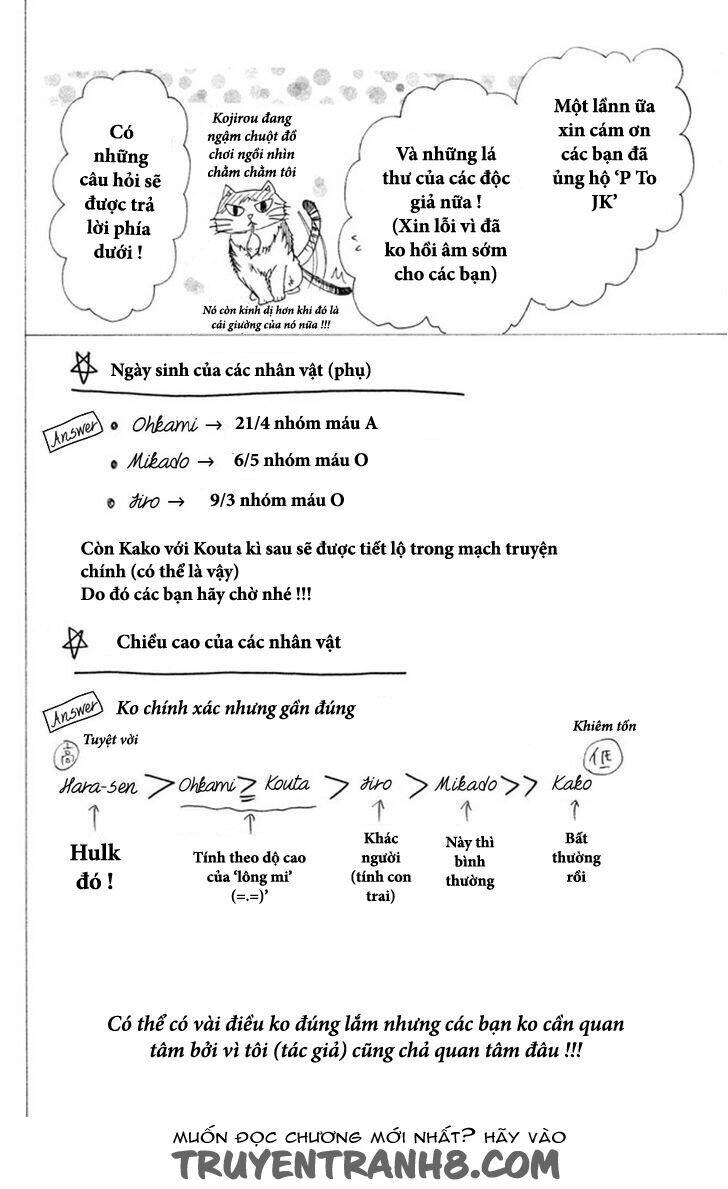 Một lầnn ữa
xin cám ơn
các bạn đã
ủng hộ 'P To
JK'
Và những lá
thư của các độc
giả nữa !
(Xin lỗi vì đã
ko hồi âm sớm
cho các bạn)
Kojirou đang
ngậm chuột đồ
chơi ngồi nhìn
chằm chằm tôi
Nó còn kinh dị hơn khi đó là
cái giường của nó nữa !!!
Có
những
câu hỏi sẽ
được trả
lời phía
dưới !
Ngày sinh của các nhân vật (phụ)
Answer • Ohkami → 21/4 nhóm máu A
• Mikado → 6/5 nhóm máu O
• Jiro → 9/3 nhóm máu O
Còn Kako với Kouta kì sau sẽ được tiết lộ trong mạch truyện
chính (có thể là vậy)
Do đó các bạn hãy chờ nhé !!!
Chiều cao của các nhân vật
Answer Ko chính xác nhưng gần đúng
Tuyệt vời Khiêm tốn
高 低
Hara-sen > Ohkami ≧ Kouta > Jiro > Mikado >> Kako
Hulk
đó !
Tính theo dộ cao
của 'lông mi'
(=.=)'
Khác
người
(tính con
trai)
Này thì
bình
thường
Bất
thường
rồi
Có thể có vài điều ko đúng lắm nhưng các bạn ko cần quan
tâm bởi vì tôi (tác giả) cũng chả quan tâm đâu !!!
MUỐN ĐỌC CHƯƠNG MỚI NHẤT? HÃY VÀO
TRUYENTRANH8.COM